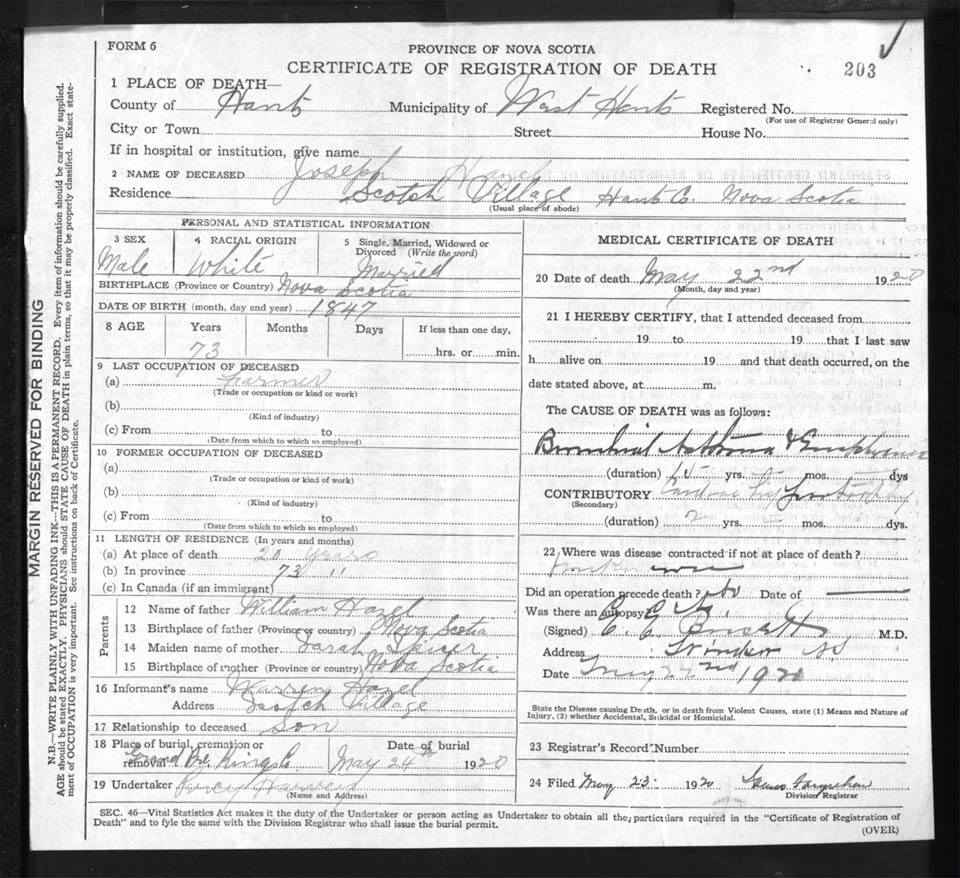 FORM 6
PROVINCE OF NOVA SCOTIA
CERTIFICATE OF REGISTRATION OF DEATH
203
1 PLACE OF DEATH—
County of Hants Municipality of West Hants Registered No.
(For use of Registrar General only)
City or Town Street House No.
If in hospital or institution, give name
2 NAME OF DECEASED Joseph
Residence Scotch Village Hants Co. Nova Scotia
(Usual place of abode)
PERSONAL AND STATISTICAL INFORMATION
3 SEX Male
4 RACIAL ORIGIN White
5 Single, Married, Widowed or Divorced (Write the word) Married
BIRTHPLACE (Province or Country) Nova Scotia
DATE OF BIRTH (month, day and year) 1847
8 AGE Years Months Days If less than one day,
73 hrs. or min.
9 LAST OCCUPATION OF DECEASED
(a) Farmer
(Trade or occupation or kind or work)
(b)
(Kind of industry)
(c) From to
(Date from which to which so employed)
10 FORMER OCCUPATION OF DECEASED
(a)
(Trade or occupation or kind of work)
(b)
(Kind of industry)
(c) From to
(Date from which to which so employed)
11 LENGTH OF RESIDENCE (In years and months)
(a) At place of death 20 years
(b) In province 73 "
(c) In Canada (if an immigrant)
Parents
12 Name of father William Hazel
13 Birthplace of father (Province or country) Nova Scotia
14 Maiden name of mother Sarah
15 Birthplace of mother (Province or country) Nova Scotia
16 Informant's name Hazel
Address Scotch Village
17 Relationship to deceased Son
18 Place of burial, cremation or removal Grand Pre Kings Co. Date of burial May 24th 1920
19 Undertaker
(Name and Address)
MEDICAL CERTIFICATE OF DEATH
20 Date of death May 22nd 1920
(Month, day and year)
21 I HEREBY CERTIFY, that I attended deceased from
19 to 19 that I last saw
h alive on 19 and that death occurred, on the
date stated above, at m.
The CAUSE OF DEATH was as follows:
Bronchial Asthma & Emphysema
(duration) 15 yrs. mos. dys
CONTRIBUTORY Cardiac Hypertrophy
(Secondary)
(duration) 2 yrs. mos. dys.
22 Where was disease contracted if not at place of death?
Did an operation precede death? No Date of
Was there an autopsy?
(Signed) M.D.
Address Windsor NS
Date May 22nd 1920
State the Disease causing Death, or in death from Violent Causes, state (1) Means and Nature of
Injury, (2) whether Accidental, Suicidal or Homicidal.
23 Registrar's Record Number
24 Filed May 23 1920
Division Registrar
SEC. 46—Vital Statistics Act makes it the duty of the Undertaker or person acting as Undertaker to obtain all the particulars required in the "Certificate of Registration of
Death" and to fyle the same with the Division Registrar who shall issue the burial permit.
(OVER)
MARGIN RESERVED FOR BINDING
N.B.—WRITE PLAINLY WITH UNFADING INK—THIS IS A PERMANENT RECORD. Every item of information should be carefully supplied.
AGE should be stated EXACTLY. PHYSICIANS should STATE CAUSE OF DEATH in plain terms, so that it may be properly classified. Exact state-
ment of OCCUPATION is very important. See instructions on back of Certificate.